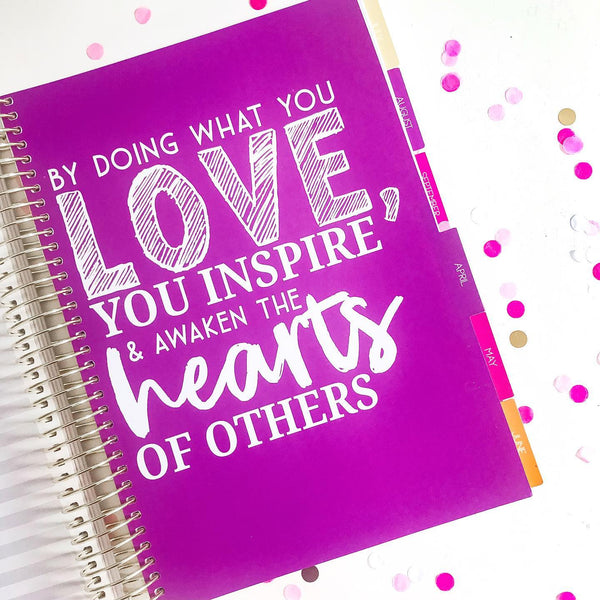 BY DOING WHAT YOU
LOVE,
YOU INSPIRE
& AWAKEN THE
hearts
OF OTHERS
AUGUST
SEPTEMBER
APRIL
MAY
JUNE